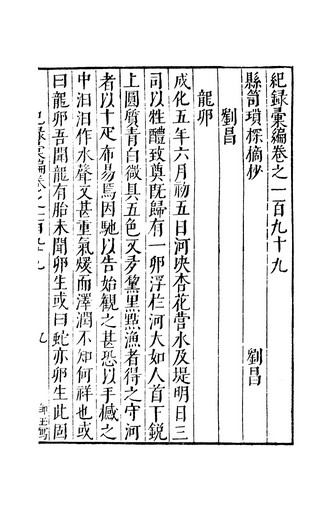 紀録彙編卷之一百九十九
縣笥瑣探摘抄　劉昌
劉昌
龍卵
成化五年六月初五日河決杏花營水及堤明日三
司以牲醴致奠既歸有一卵浮於河大如人首下銳
上圓質青白微具五色文多黧黑點漁者得之守河
者以十疋布易焉因馳以告始觀之甚恐以手撼之
中汩汩作水聲文甚重氣煖而澤潤不知何祥也或
曰龍卵吾聞龍有胎未聞卵生或曰蛇亦卵生此固
九